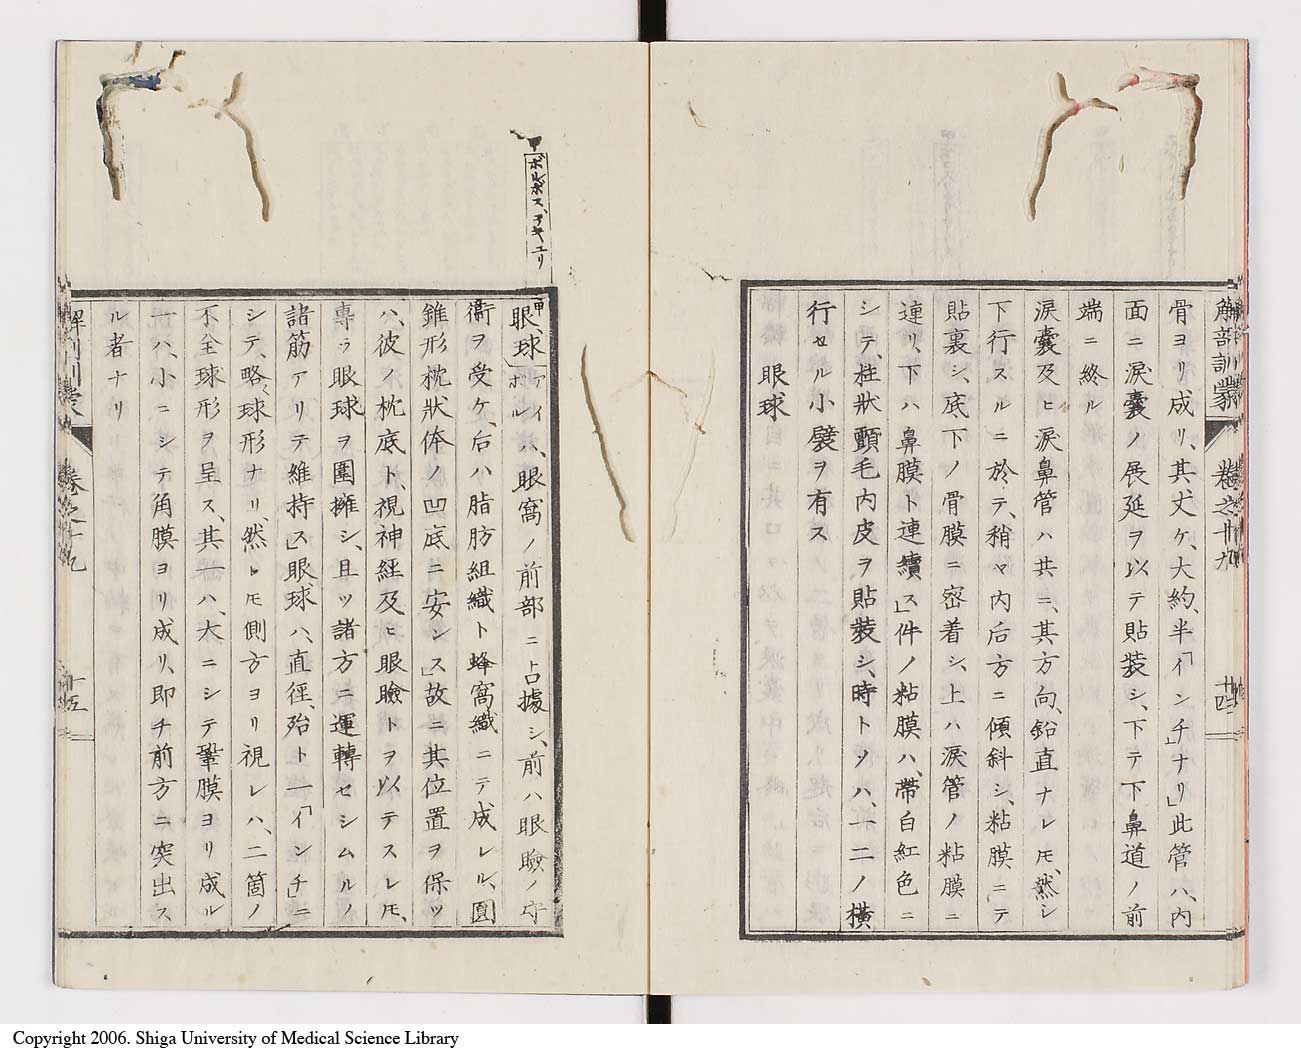 解剖訓蒙 卷之十九 十四
骨ヨリ成リ、其丈ケ、大約、半「インチ」ナリ」此管ハ、内
面ニ淚囊ノ展延ヲ以テ貼裝シ、下テ下鼻道ノ前
端ニ終ル
淚囊及ヒ淚鼻管ハ共ニ、其方向、鉛直ナレ𪜈、然シ
下行スルニ於テ、稍々内后方ニ傾斜シ、粘膜ニテ
貼裏シ、底下ノ骨膜ニ密着シ、上ハ淚管ノ粘膜ニ
連リ、下ハ鼻膜ト連續ス」件ノ粘膜ハ、帶白紅色ニ
シテ、柱狀顫毛内皮ヲ貼裝シ、時トシハ、一二ノ橫
行セル小襞ヲ有ス
眼球
甲 ボルボス、ヲキュリ
甲 眼球 アイ、ボルハ、眼窩ノ前部ニ占據シ、前ハ眼瞼ノ守
衞ヲ受ケ、后ハ脂肪組織ト蜂窩織ニテ成レル、圓
錐形枕狀体ノ凹底ニ安ンス」故ニ其位置ヲ保ツ
ハ、彼ノ枕底ト、視神經及ヒ眼瞼トヲ以テスレ𪜈、
專ラ眼球ヲ圍擁シ、且ツ諸方ニ運轉セシムルノ
諸筋アリテ維持ス」眼球ハ、直徑、殆ト一「インチ」ニ
シテ、略、球形ナリ、然レ𪜈側方ヨリ視レハ、二箇ノ
不全球形ヲ呈ス、其一ハ、大ニシテ鞏膜ヨリ成ル
一ハ、小ニシテ角膜ヨリ成リ、即チ前方ニ突出ス
ル者ナリ
解剖訓蒙 卷之十九 十五
Copyright 2006. Shiga University of Medical Science Library